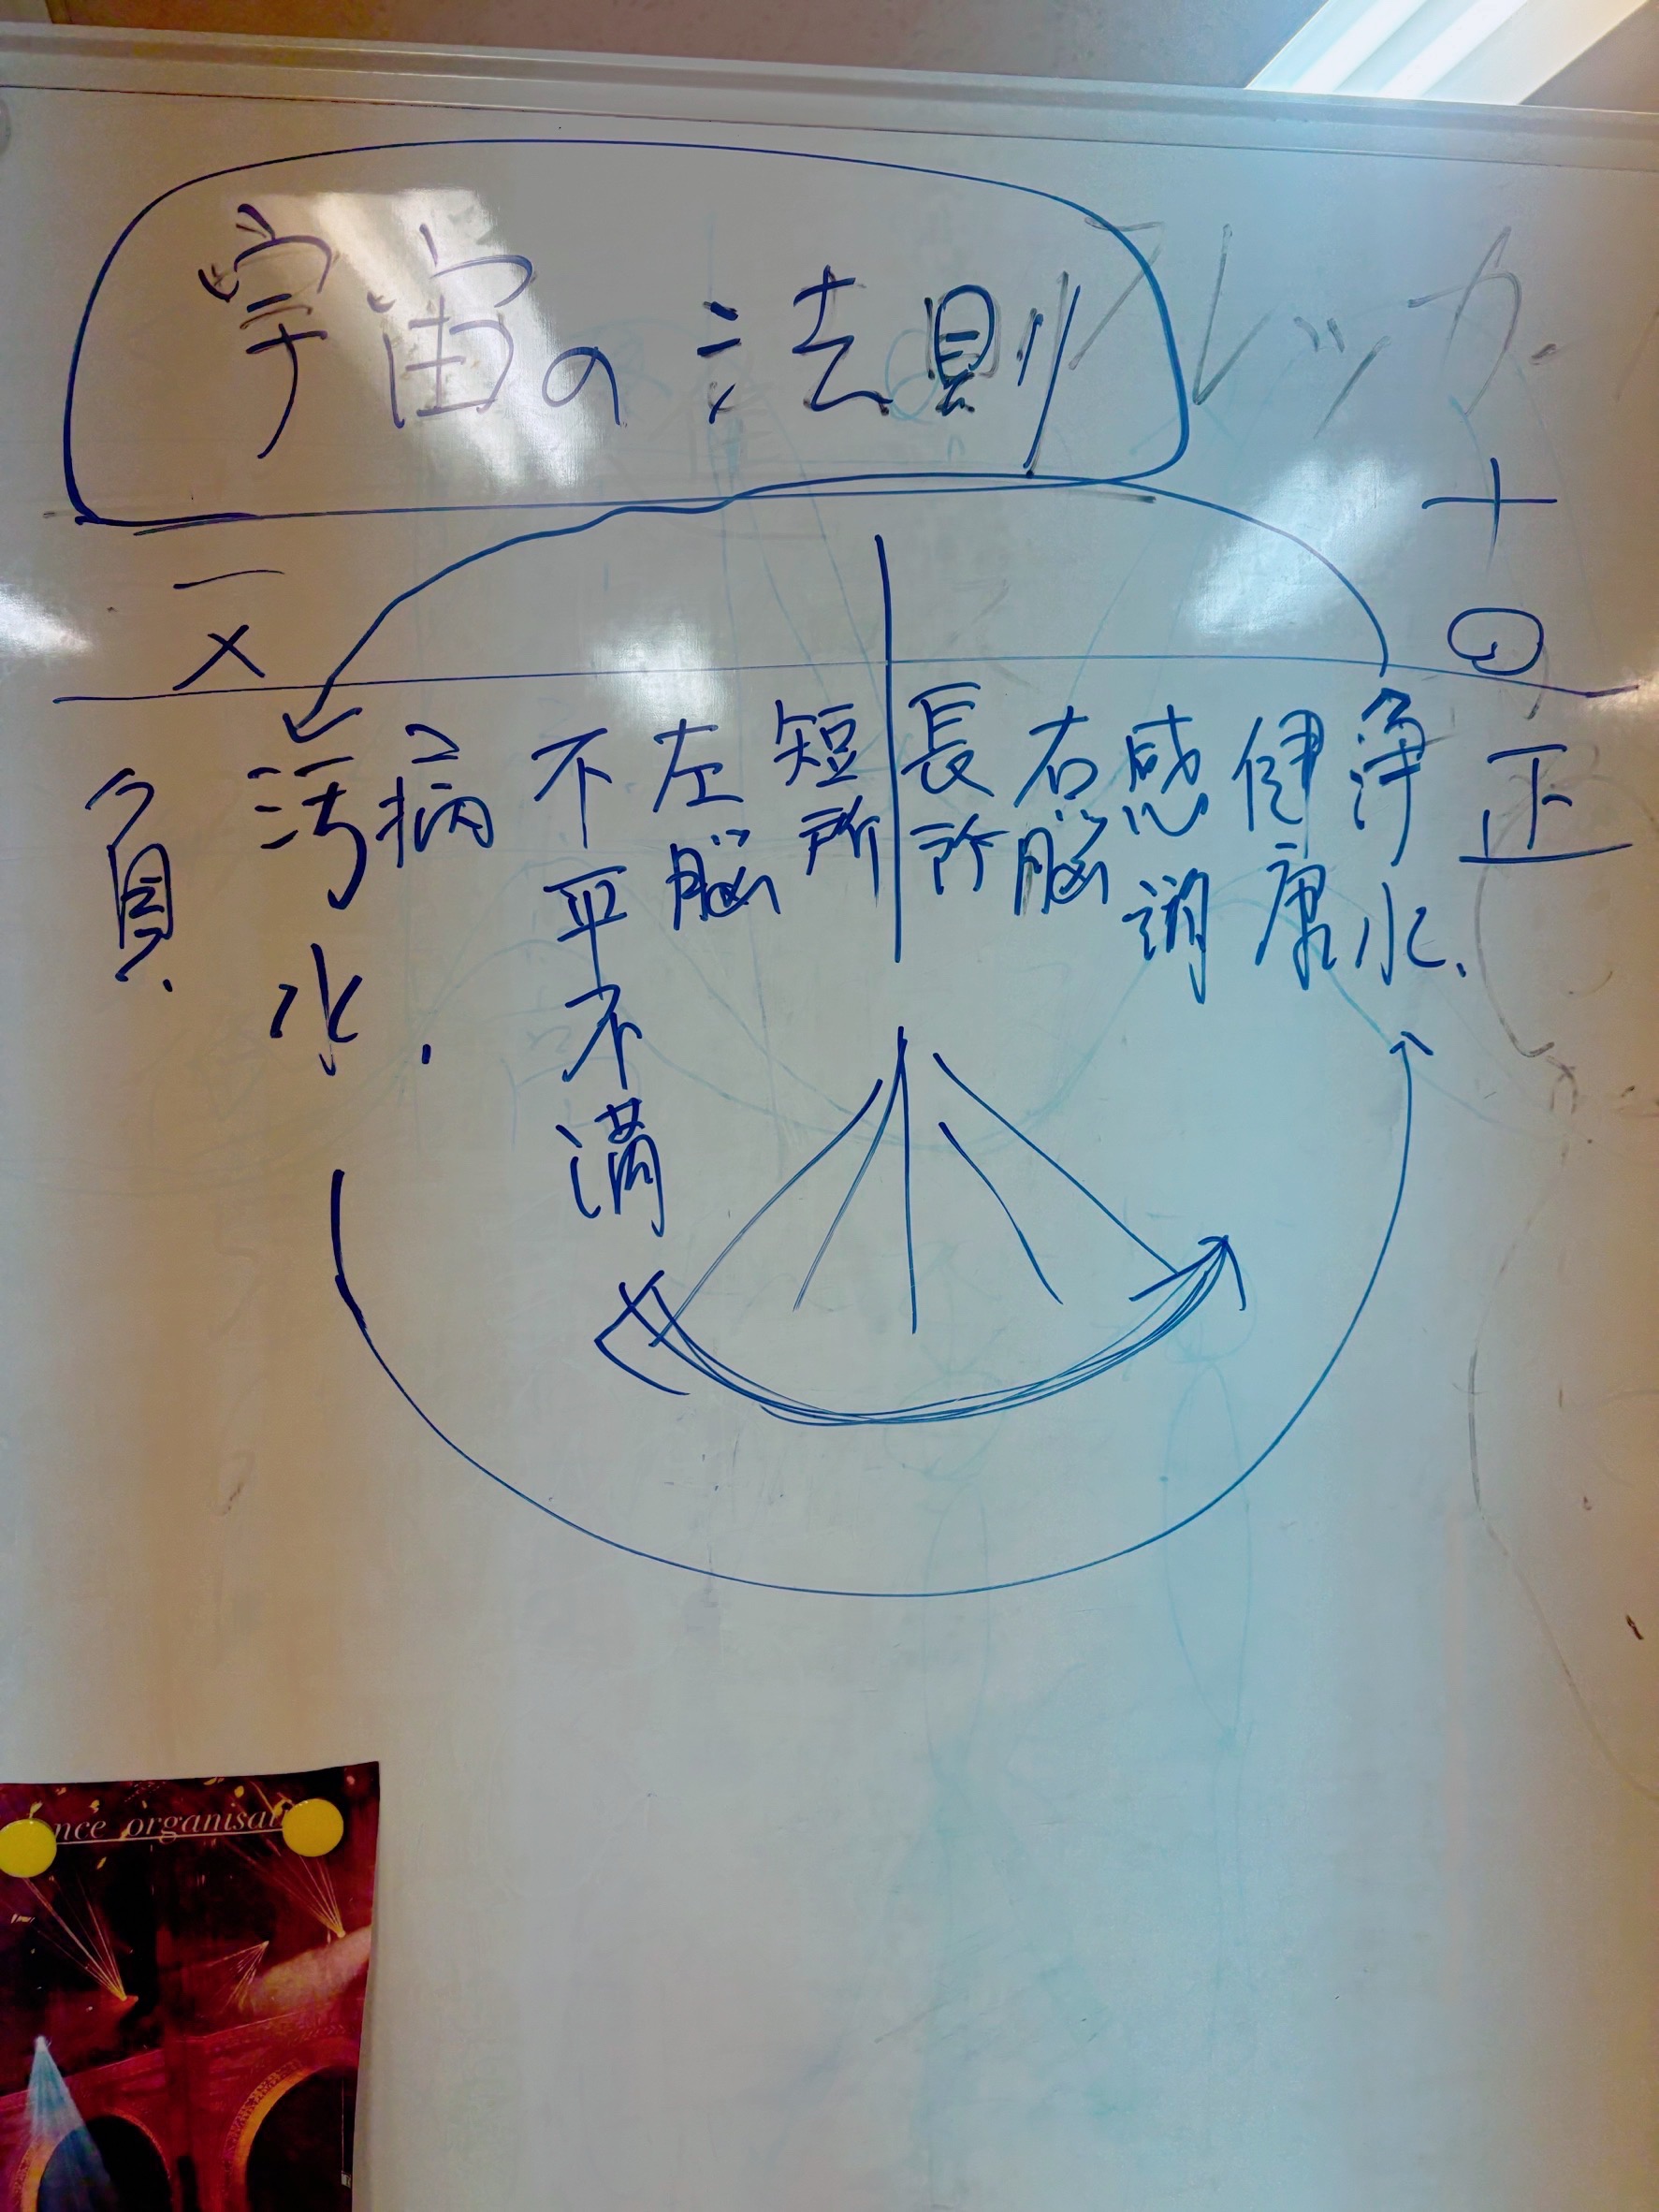 宇宙の法則
＋
◎
正
浄水、
健康
感謝
右脳
長所
短所
左脳
不平不満
病
汚水.
－
×
負.
nce organisat